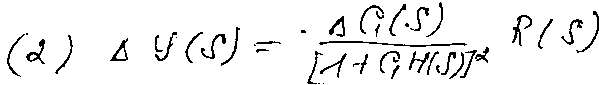 (2) Δ Y(S) = ΔG(S) / [1+GH(S)]² R(S)